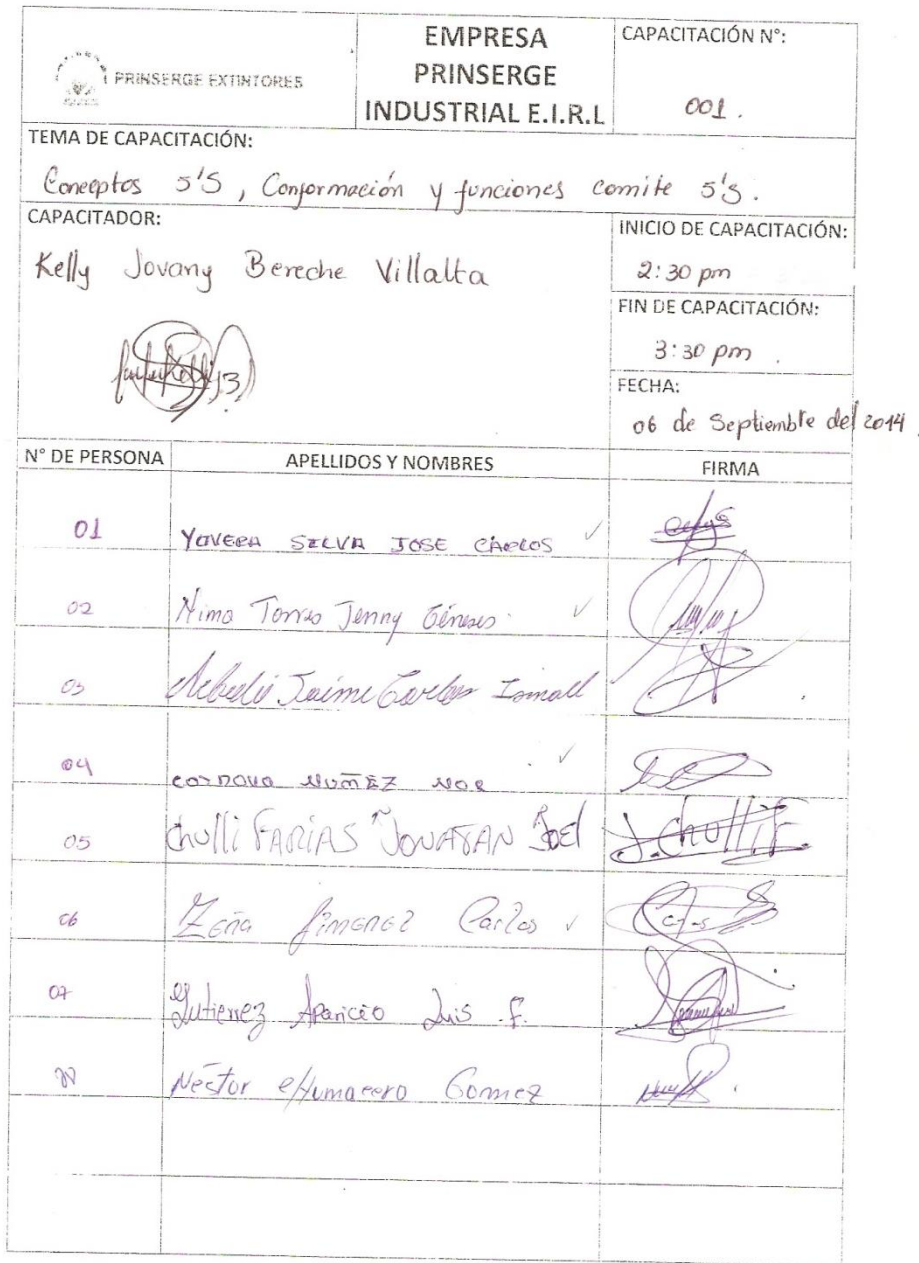 PRINSERGE EXTINTORES
EMPRESA
PRINSERGE
INDUSTRIAL E.I.R.L
CAPACITACIÓN N°:
001.
TEMA DE CAPACITACIÓN:
Conceptos 5'S, Conformación y funciones comite 5'S.
CAPACITADOR:
Kelly Jovany Bereche Villalta
INICIO DE CAPACITACIÓN:
2:30 pm
FIN DE CAPACITACIÓN:
3:30 pm.
FECHA:
06 de Septiembre del 2014.
N° DE PERSONA APELLIDOS Y NOMBRES FIRMA
01 YOVERA SILVA JOSE CARLOS
02 Nima Torres Jenny Génesis.
03 Jaime Carlos Ismael
04 CORDOVA NUÑEZ NOE
05 Chulli FARIAS JONATAN JOEL J. Chulli F.
06 Zeña Jimenez Carlos
07 Gutierrez Aparicio Luis F.
Néstor Chumacero Gomez